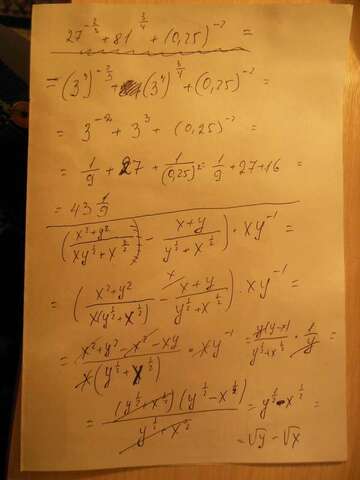 27^{-2/3} + 81^{3/4} + (0,25)^{-2} =
= (3^3)^{-2/3} + (3^4)^{3/4} + (0,25)^{-2} =
= 3^{-2} + 3^3 + (0,25)^{-2} =
= 1/9 + 27 + 1/(0,25)^2 = 1/9 + 27 + 16 =
= 43 1/9
((x^2+y^2)/(xy^{1/2} + x^{3/2}) - (x+y)/(y^{1/2} + x^{1/2})) · xy^{-1} =
= ((x^2+y^2)/(x(y^{1/2} + x^{1/2})) - (x+y)/(y^{1/2} + x^{1/2})) · xy^{-1} =
= (x^2+y^2-x^2-xy)/(x(y^{1/2} + x^{1/2})) · xy^{-1} = y(y-x)/(y^{1/2} + x^{1/2}) · 1/y =
= (y^{1/2} + x^{1/2})(y^{1/2} - x^{1/2})/(y^{1/2} + x^{1/2}) = y^{1/2} - x^{1/2} =
= √y - √x